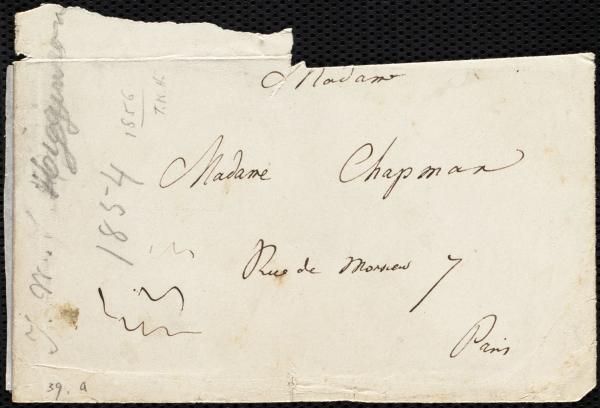 Madame
Madame Chapman
Rue de Monsieur 7
Paris
Higginson
1854
1856
T.W.H.
39. a